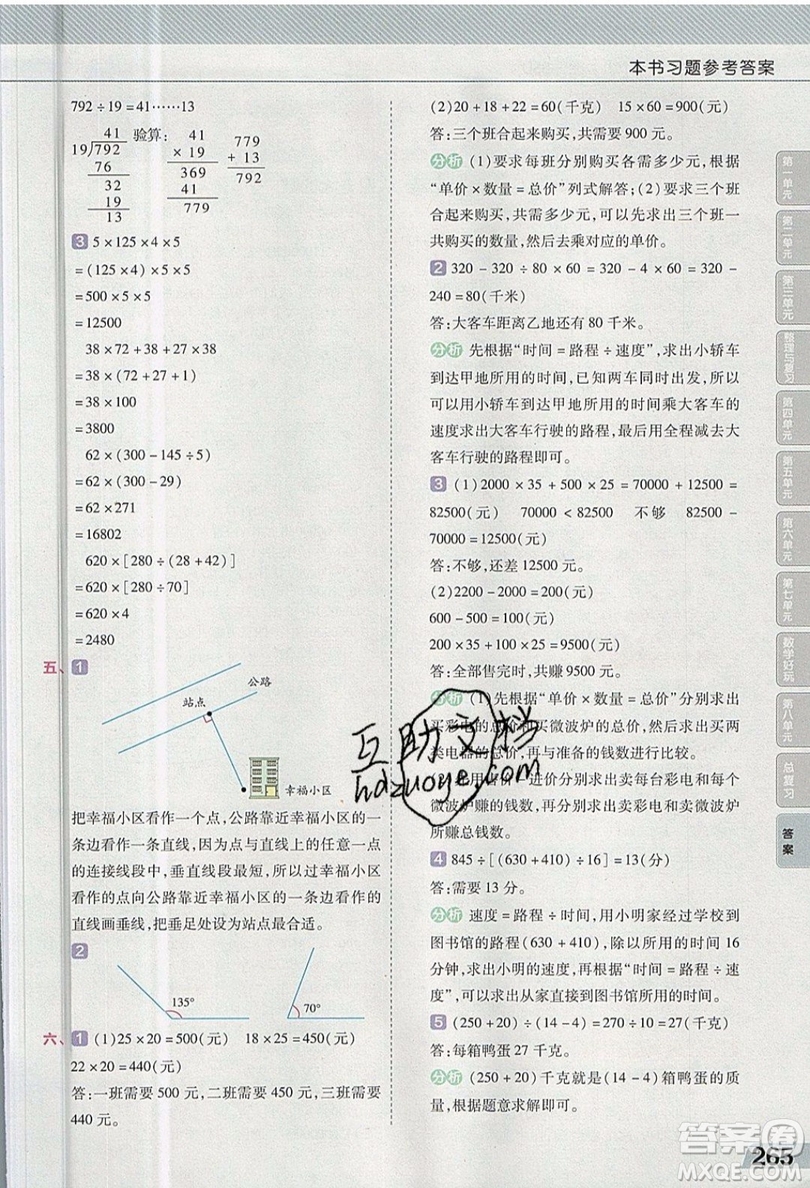 本书习题参考答案
792÷19=41……13
41
19)792
76
32
19
13
验算:
41
×19
369
41
779
779
+ 13
792
3 5×125×4×5
=(125×4)×5×5
=500×5×5
=12500
38×72+27×38+38
=38×(72+27+1)
=38×100
=3800
62×(300-145÷5)
=62×(300-29)
=62×271
=16802
620×[280÷(28+42)]
=620×[280÷70]
=620×4
=2480
五、1
公路
站点
幸福小区
把幸福小区看作一个点,公路靠近幸福小区的一
条边看作一条直线,因为点与直线上的任意一点
的连接线段中,垂直线段最短,所以过幸福小区
看作的点向公路靠近幸福小区的一条边看作的
直线画垂线,把垂足处设为站点最合适。
2
135°
70°
六、1 (1)25×20=500(元) 18×25=450(元)
22×20=440(元)
答:一班需要 500 元,二班需要 450 元,三班需要
440 元。
(2)20+18+22=60(千克) 15×60=900(元)
答:三个班合起来购买,共需要 900 元。
分析 (1)要求每班分别购买各需多少元,根据
“单价×数量=总价”列式解答;(2)要求三个班
合起来购买,共需多少元,可以先求出三个班一
共购买的数量,然后去乘对应的单价。
2 320-320÷80×60=320-4×60=320-
240=80(千米)
答:大客车距离乙地还有 80 千米。
分析 先根据“时间=路程÷速度”,求出小轿车
到达甲地所用的时间,已知两车同时出发,所以
可以用小轿车到达甲地所用的时间乘大客车的
速度求出大客车行驶的路程,最后用全程减去大
客车行驶的路程即可。
3 (1)2000×35+500×25=70000+12500=
82500(元) 70000<82500 不够 82500-
70000=12500(元)
答:不够,还差 12500 元。
(2)2200-2000=200(元)
600-500=100(元)
200×35+100×25=9500(元)
答:全部售完时,共赚 9500 元。
分析 (1)先根据“单价×数量=总价”分别求出
买彩电的总价和买微波炉的总价,然后求出买两
类电器的总价,再与准备的钱数进行比较。
(2)先用售价-进价分别求出卖每台彩电和每个
微波炉赚的钱数,再分别求出卖彩电和卖微波炉
所赚总钱数。
4 845÷[(630+410)÷16]=13(分)
答:需要 13 分。
分析 速度=路程÷时间,用小明家经过学校到
图书馆的路程(630+410),除以所用的时间 16
分钟,求出小明的速度,再根据“时间=路程÷速
度”,可以求出从家直接到图书馆所用的时间。
5 (250+20)÷(14-4)=270÷10=27(千克)
答:每箱鸭蛋 27 千克。
分析 (250+20)千克就是(14-4)箱鸭蛋的质
量,根据题意求解即可。
第一单元
第二单元
第三单元
整理与复习
第四单元
第五单元
第六单元
第七单元
数学好玩
第八单元
总复习
答案
互助文档
hdzuoye.com
答案圈
MXQE.COM
265